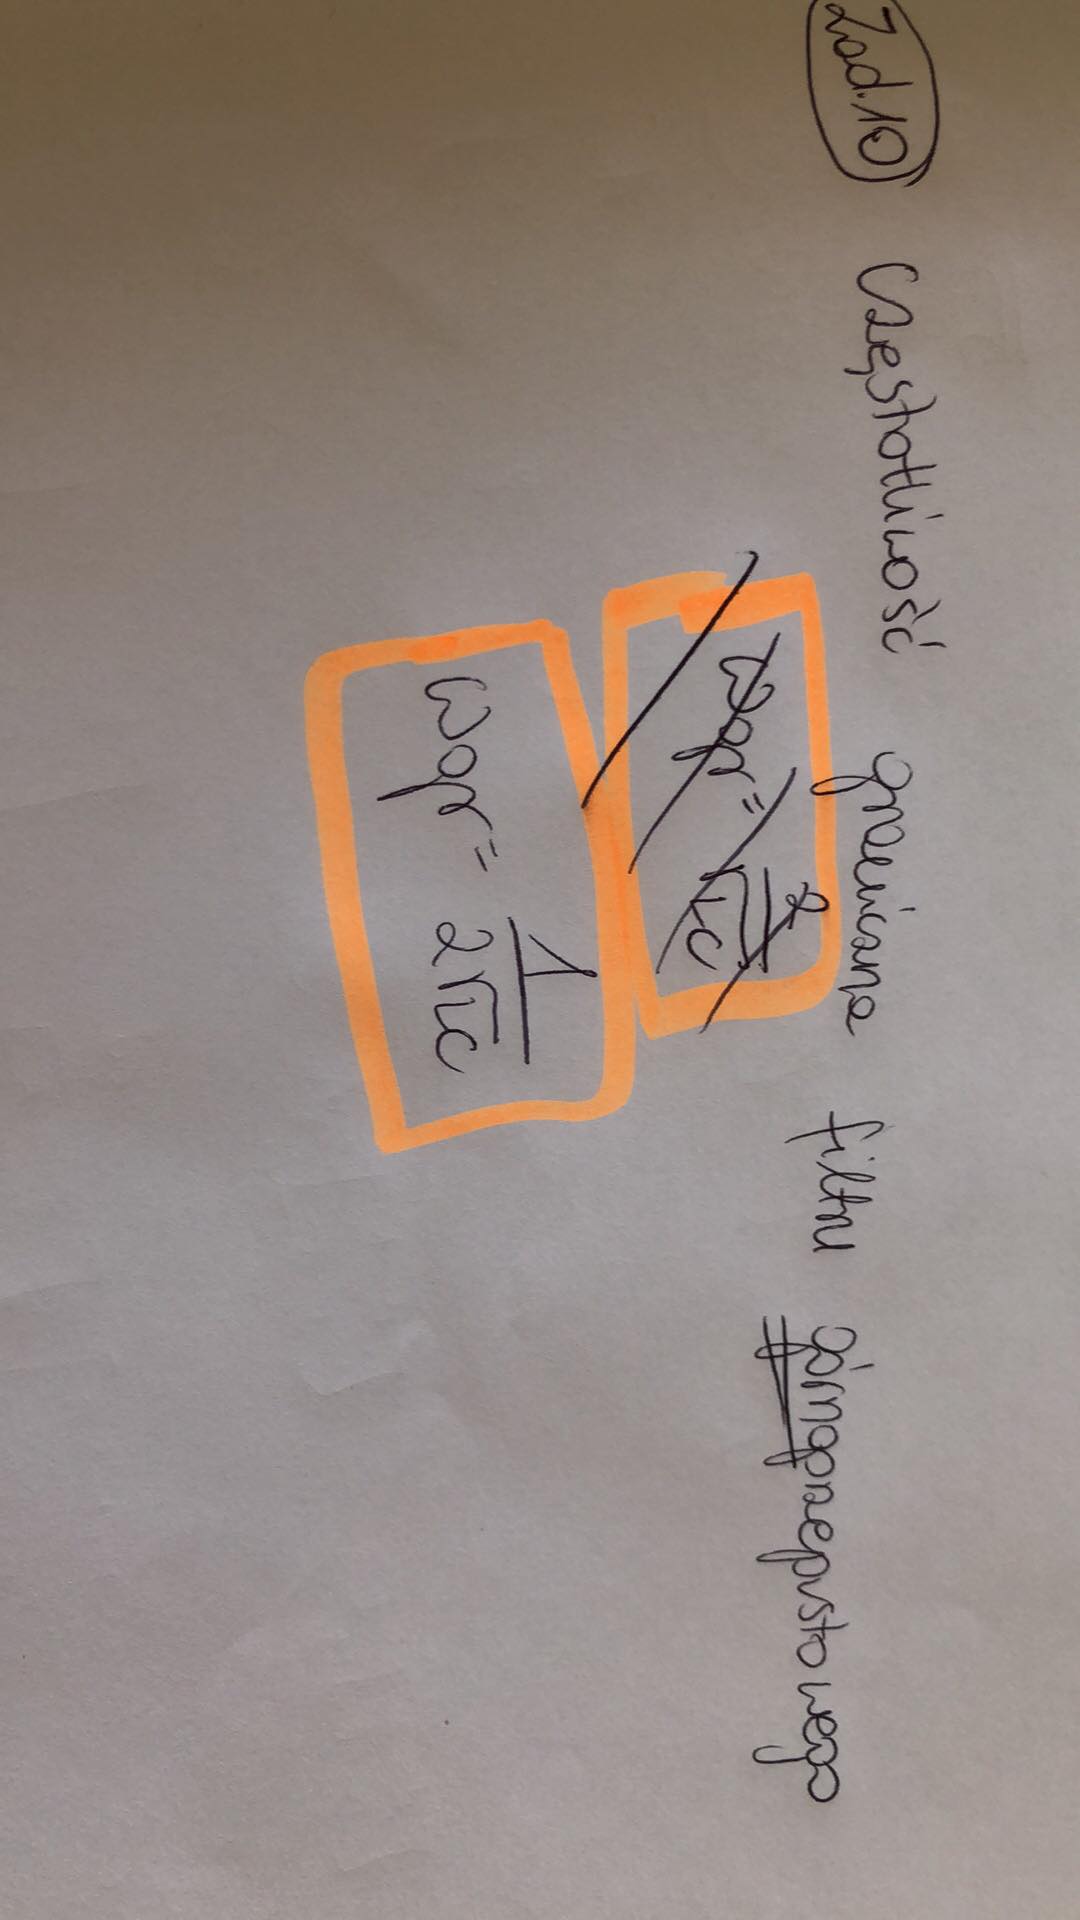 Zad.10 Częstotliwość graniczna filtru górnoprzepustowego
ωgr = 2/√LC
ωgr = 1/2√LC